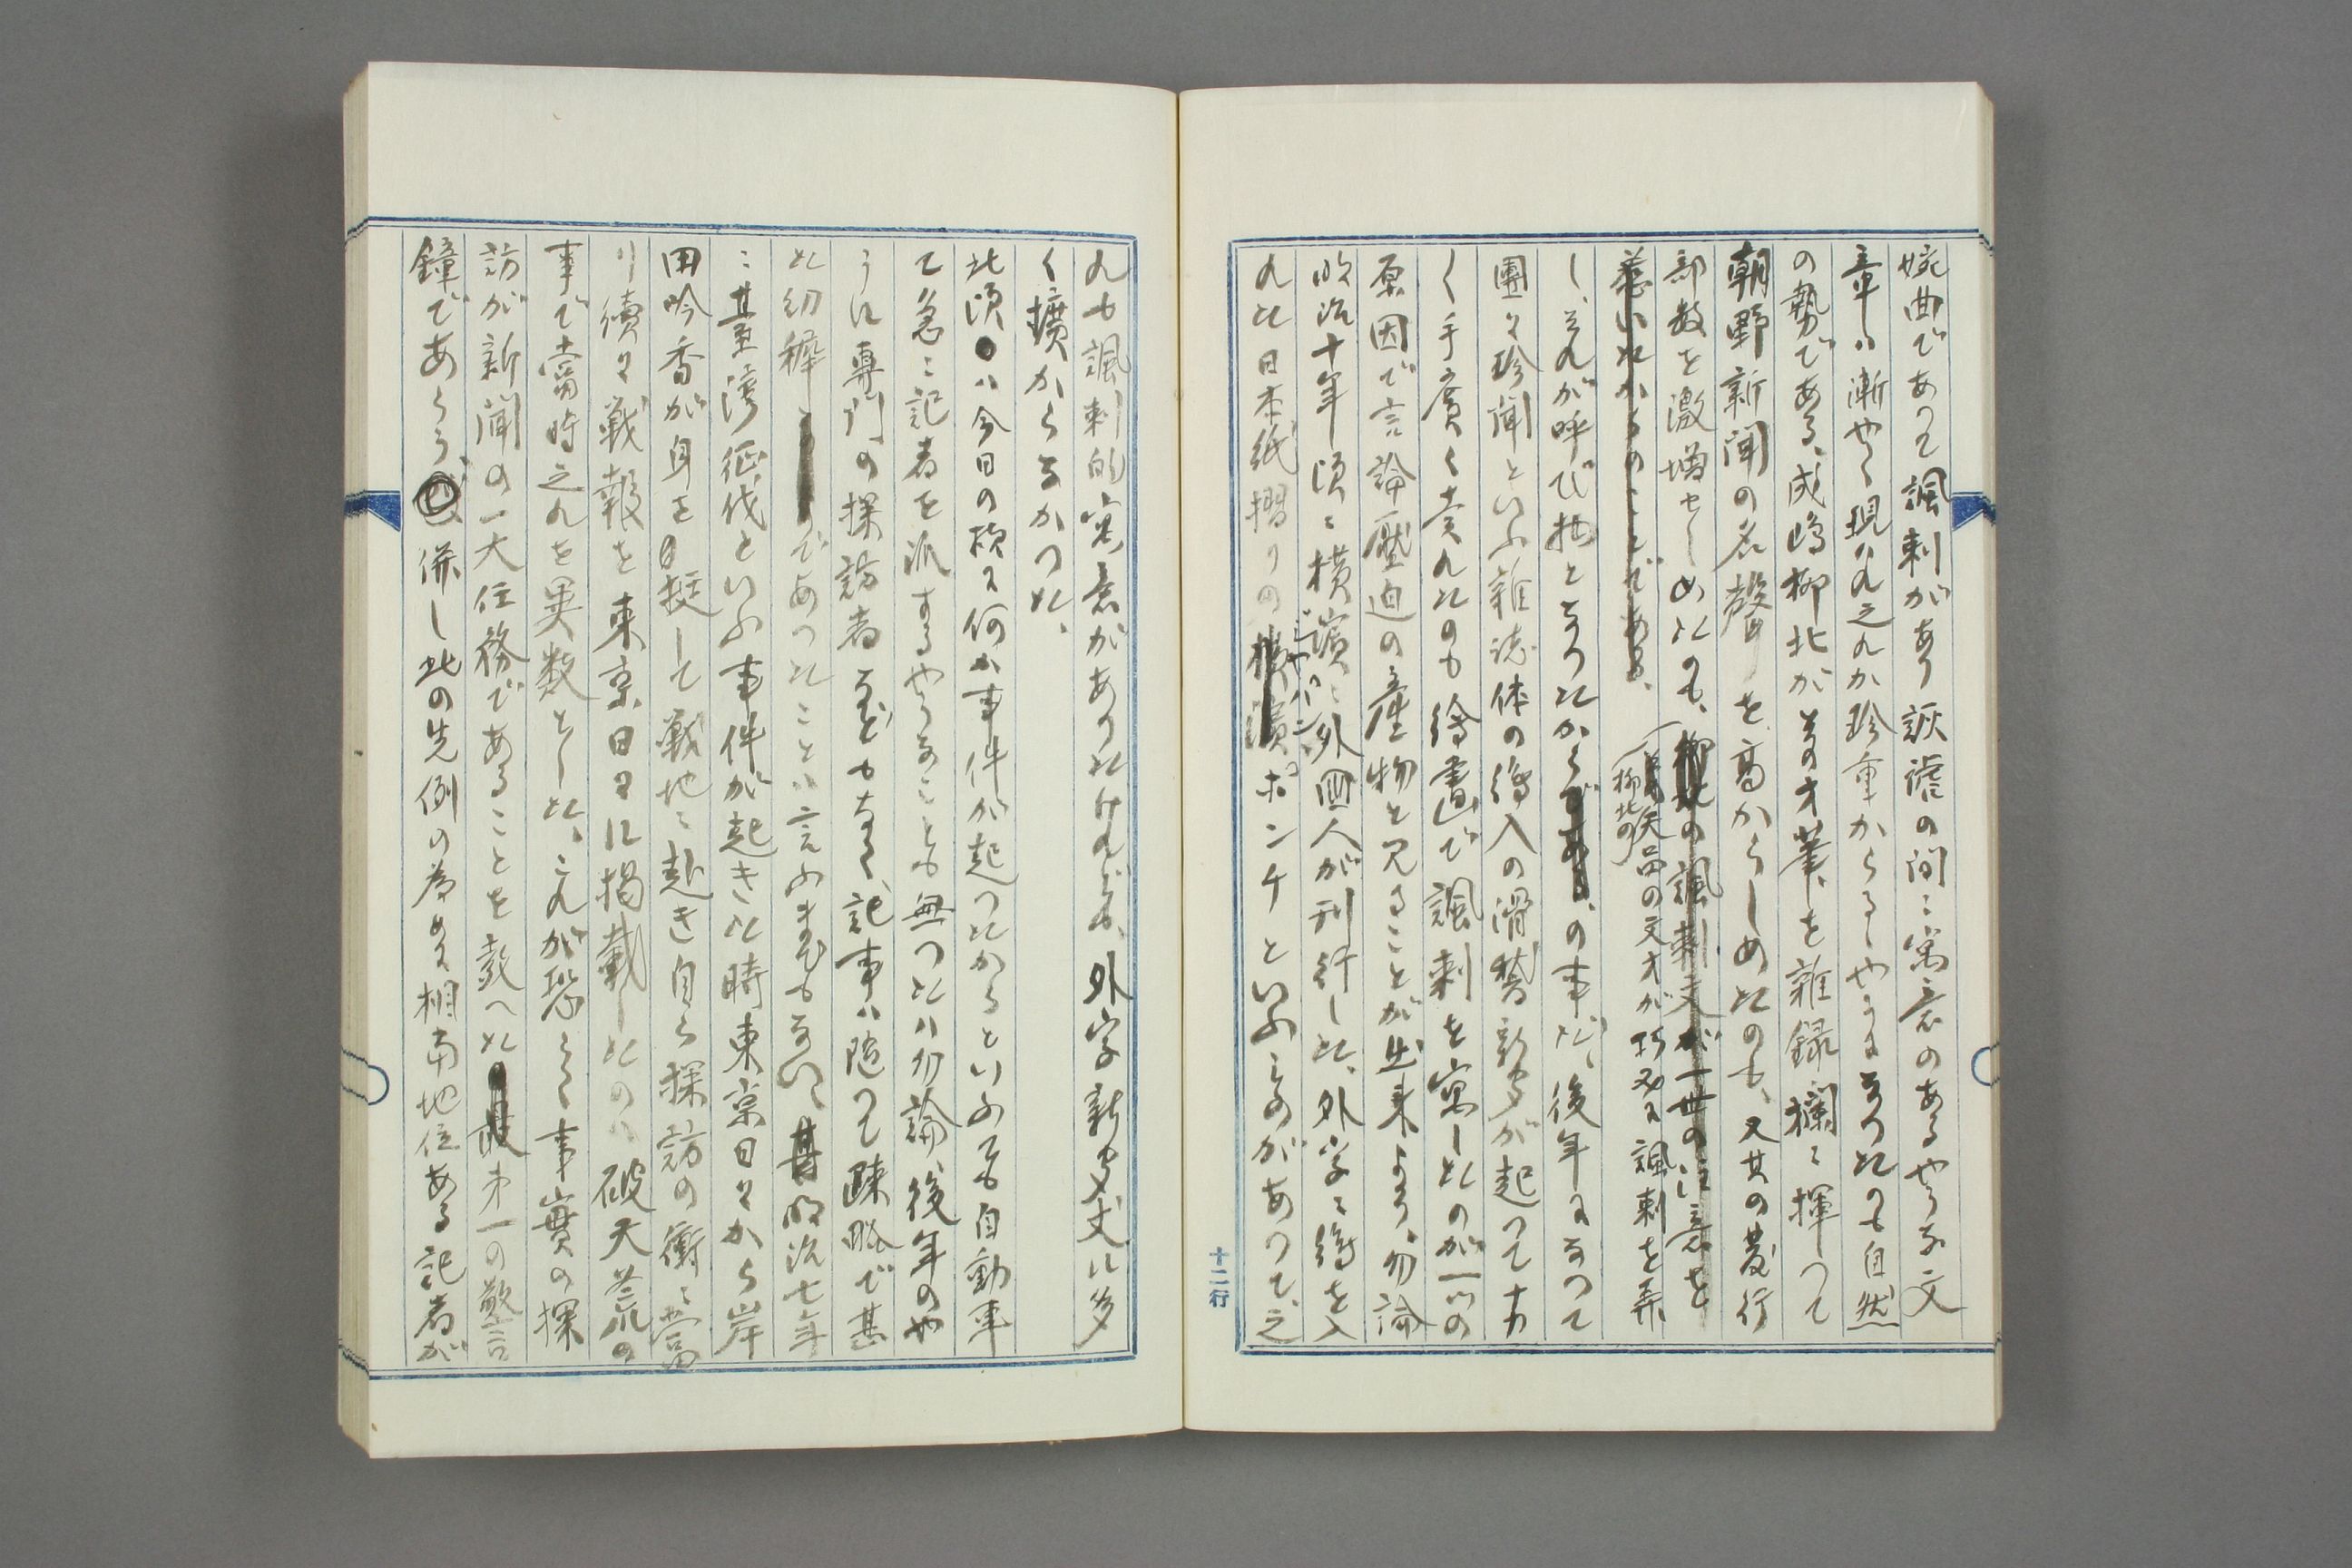 婉曲であつて諷刺があり諧謔の間に寓意のあるやうな文
章ハ漸やく現ハれ之れか珍重からるゝやうになつたのも自然
の勢である、成嶋柳北が其の才筆を雑録欄に揮つて
朝野新聞の名声を高からしめたのも、又其の発行
部数を激増せしめたのも、柳北の諷刺文が一世の注意を
惹いたからのことである、
(柳北の天品の文才が巧みに諷刺を弄
し、それが呼び物となつたから、の事だ、後年になつて
團々珍聞といふ雑誌体の絵入の滑稽新聞が起つて大
く手廣く売れたのも絵画で諷刺を寓したのが一つの
原因で言論圧迫の産物と見ることが出来よう、勿論
明治十年頃に横濱に外国人が刊行した、外字に絵を入
れた日本紙摺りのジヤパン、ポンチといふものがあつて、之
十二行
れも諷刺的寓意がありたけれども、外字新聞丈に多
く擴がらなかつた、
此頃ハ今日の様に何か事件が起つたからといふても自動車
て急に記者を派するやうなことも無つたハ勿論、後年のや
うに専門の探訪者なども無く、記事ハ随つて疎略で甚
た幼稚であつたことハ言ふまでもない、明治七年
に臺湾征伐といふ事件が起きた時東京日々から岸
田吟香が身を挺して戦地に赴き自ら探訪の衝に当
り續々戦報を東京日々に掲載したのハ破天荒の
事で當時之れを異数とした、これが恐らく事實の探
訪が新聞の一大任務であることを教へた第一の警
鐘であらう、併し此の先例の為めに相當地位ある記者が